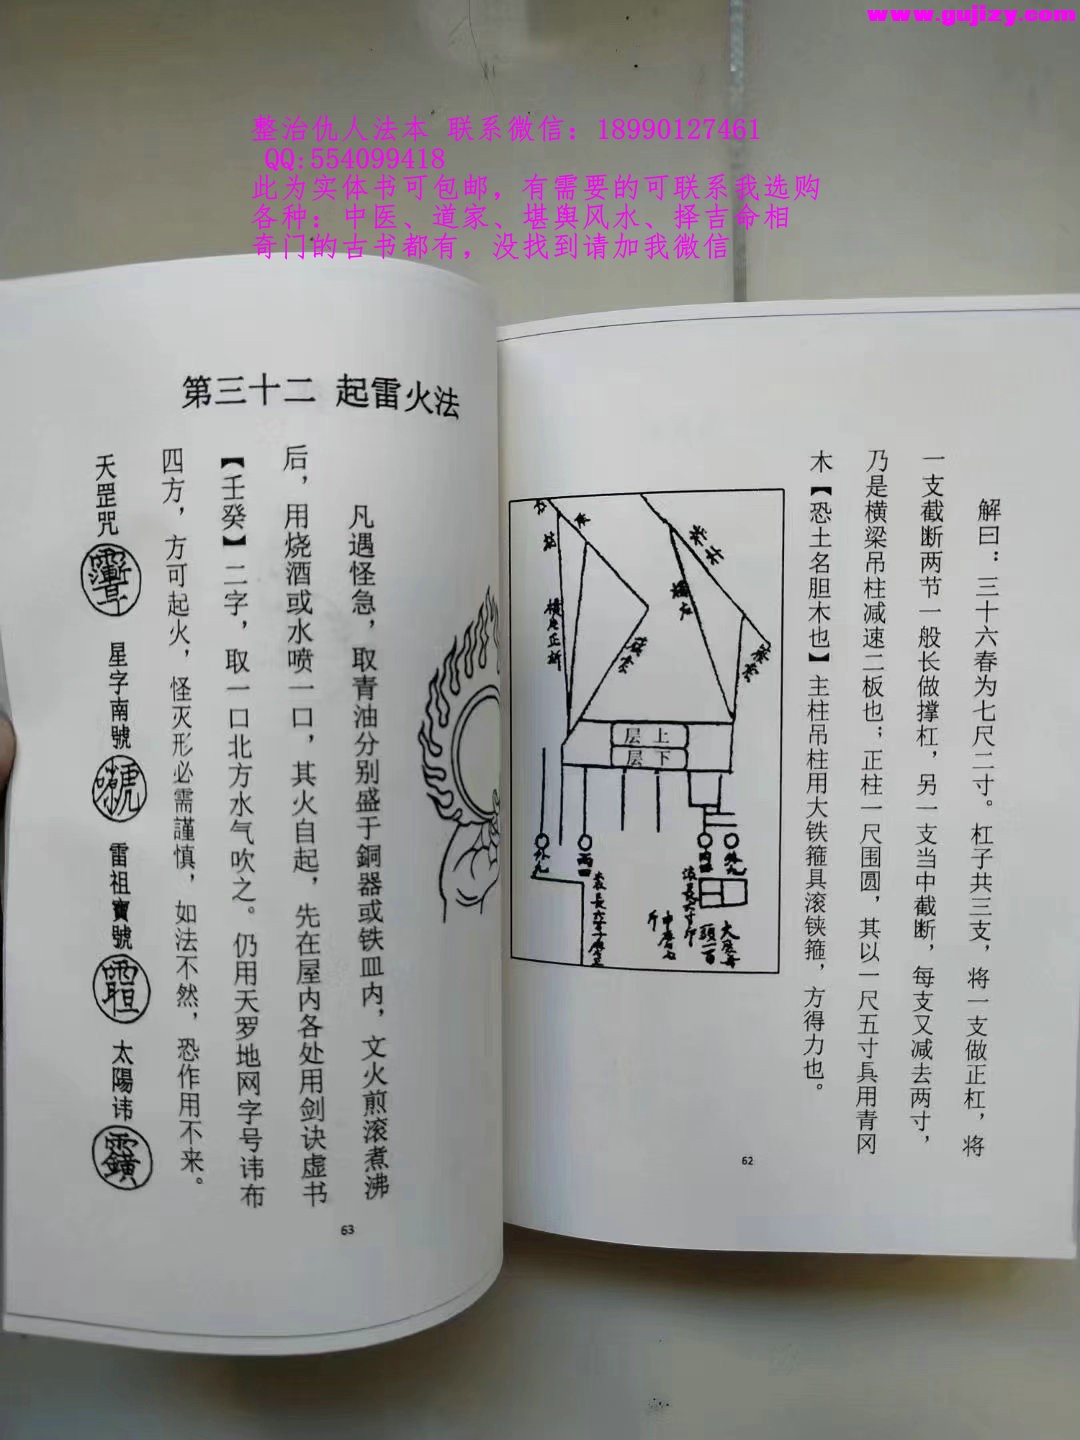 www.gujizy.com
整治仇人法本 联系微信：18990127461
QQ:554099418
此为实体书可包邮，有需要的可联系我选购
各种：中医、道家、堪舆风水、择吉命相
奇门的古书都有，没找到请加我微信
解曰：三十六春为七尺二寸。杠子共三支，将一支做正杠，将
一支截断两节一般长做撑杠，另一支当中截断，每支又减去两寸，
乃是横梁吊柱减速二板也；正柱一尺围圆，其以一尺五寸具用青冈
木【恐土名胆木也】主柱吊柱用大铁箍具滚铗箍，方得力也。
层上
层下
62
第三十二 起雷火法
凡遇怪急，取青油分别盛于銅器或铁皿内，文火煎滚煮沸
后，用烧酒或水喷一口，其火自起，先在屋内各处用剑诀虚书
【壬癸】二字，取一口北方水气吹之。仍用天罗地网字号讳布
四方，方可起火，怪灭形必需謹慎，如法不然，恐作用不来。
天罡咒 星字南號 雷祖寶號 太陽讳
63